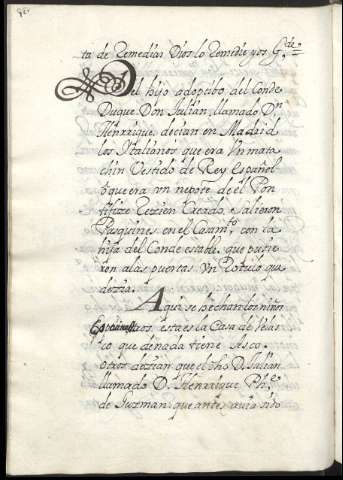 ta de Remedias Dios lo Remedie y os G.de
Del hijo adoptibo del Conde
Duque Don Julian llamado Dn
Henrrique, decian en Madrid
los Italianos que era Un mata
chin Vestido de Rey Español
o que era un nepote de el Pon
tifize Rezien Creado, e salieron
Pasquines en el Casamto con la
hija del Conde estable, que pusie
ron a las puertas Un Rotulo que
dezia.
Aqui se hechan los niños
esta es la Casa de Velas
co que de nada tiene Asco.
otros dezian que el dho D. Julian
llamado D. Henrrique Phe
de Guzman que antes auia sido